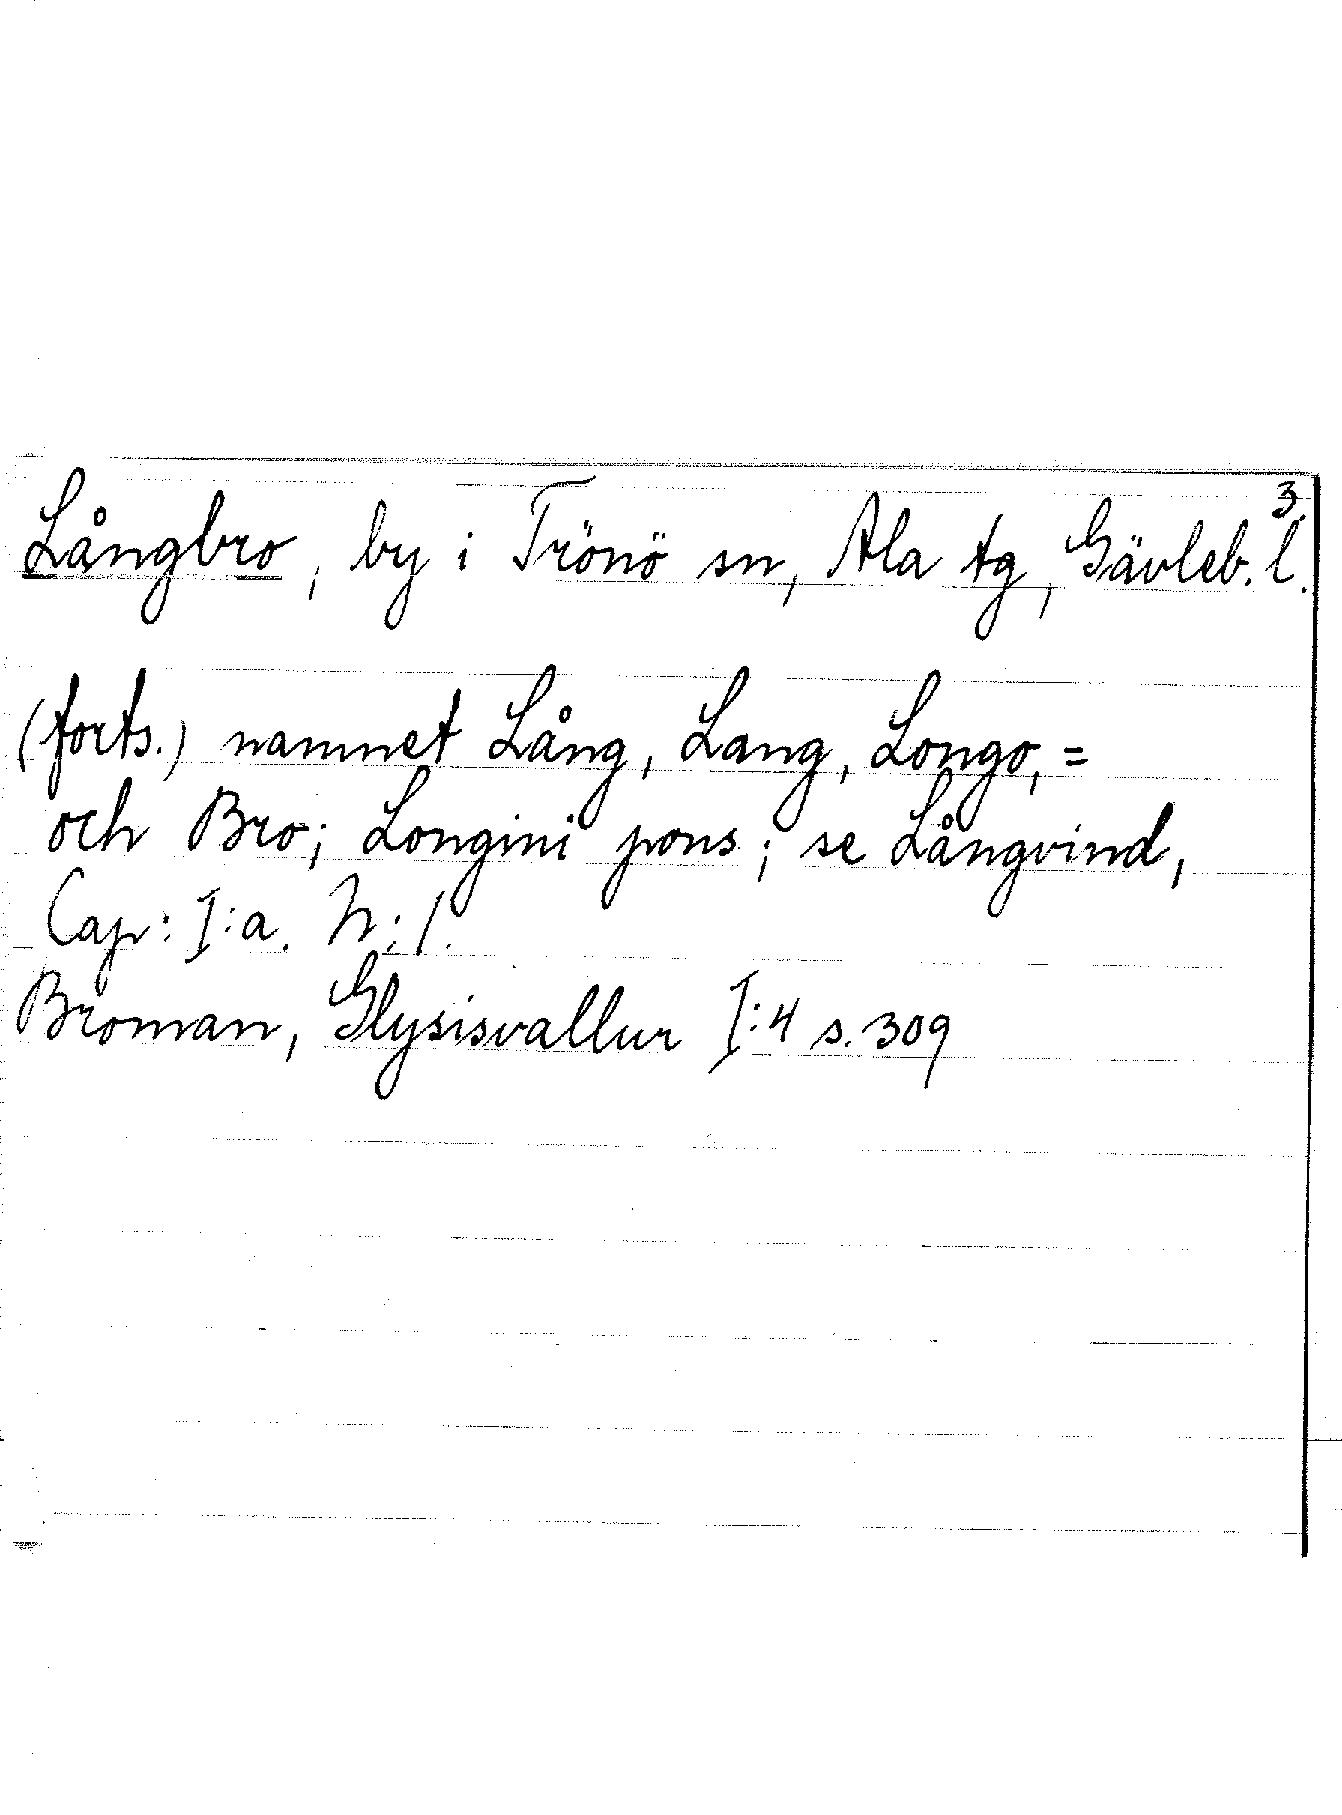 3.
Långbro, by i Trönö sn, Ala tg, Gävleb. l.
(forts.) namnet Lång, Lang, Longo, =
och Bro; Longini pons; se Långvind,
Cap: I:a. N: 1.
Broman, Glysisvallur I:4 s. 309